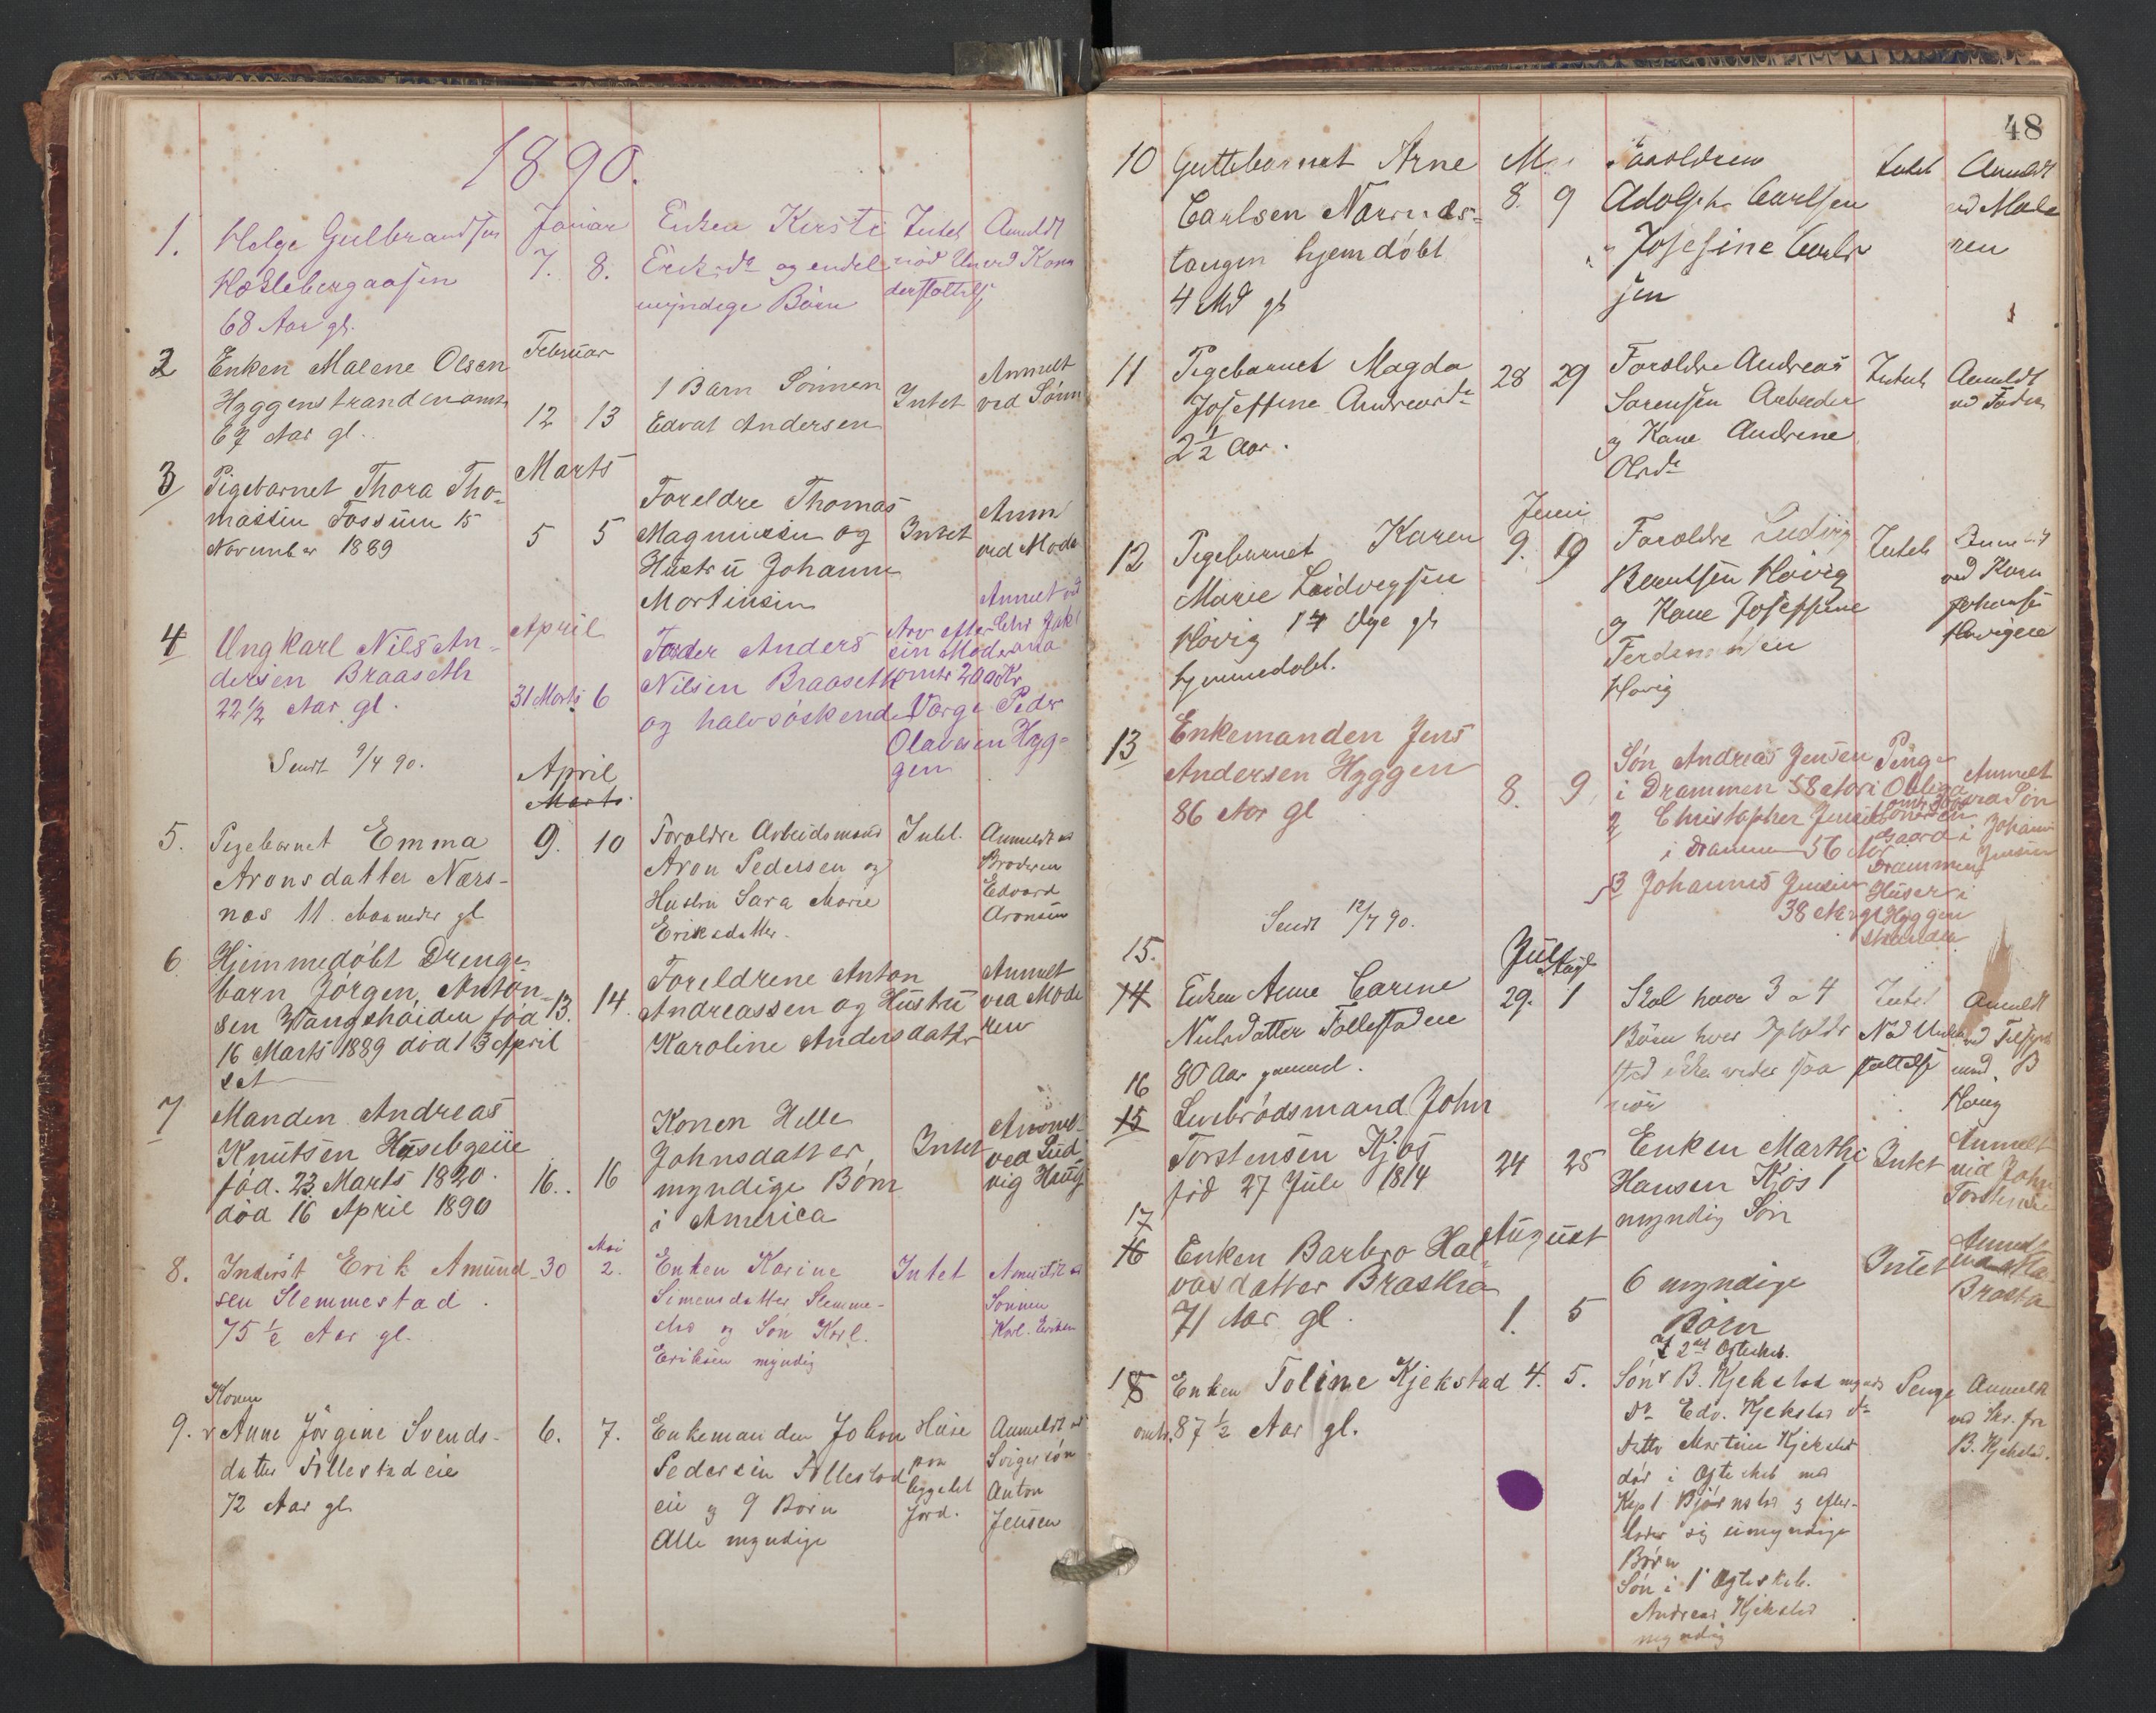 1890.
1. Helge Gulbrandsen
68 Aar gl.
Januar
7. 8.
Enken Kirsti
og
myndige Börn
Intet
Anmeldt
2 Enken Malene Olsen
Hyggenstranden omtr
67 Aar gl.
Februar
12 13
1 Barn Sönnen
Edvat Andersen
Intet
Anmelt
ved Sönn
3 Pigebarnet Thora Tho-
massen Fossum 15
November 1889
Marts
5 5
Foreldre Thomas
Magnussen og
Hustru Johanne
Mortinsen
Intet
Anm
ved Mode
4 Ungkarl Nils An-
dersen Braaseth
22 1/2 Aar gl.
Sendt 9/4 90.
April
31 Marts 6
Fader Anders
Nilsen Braaseth
og halvsöskende
Arv efter
sin Moder
omtr 200 Kr
Værge Peder
Olavesen Hyg-
gen
Anmelt ved
April
Marts
5. Pigebarnet Emma
Aronsdatter Nærs-
nes 11. Maaneder gl
9. 10
Forældre Arbeidsmand
Aron Pedersen og
Hustru Sara Marie
Eriksdatter.
Intet.
Anmeldt ved
Broderen
Edvard
Aronsen
6 Hjemmedöbt Drenge-
barn Jörgen, Anton-
sen Wangshaiden föd
16 Marts 1889 död 13 April
13. 14.
Foreldrene Anton
Andreassen og Hustru
Karoline Andersdatter
Anmelt
ved Mode
ren
7 Manden Andreas
Knutsen Hasebgeiie
föd. 23 Marts 1820.
död 16 April 1890
16.. 16
Konen Helle
Johnsdatter,
myndige Börn
i America
Intet
Anmel
ved Lud
vig Haug
8. Inderst Erik Amund-
sen Slemmestad.
75 1/2 Aar gl.
Mai
30 2.
Enken Karine
Simensdatter Slemme-
stad og Sön Karl.
Eriksen myndig
Intet
Anmeldt ved
Sönnen
Karl. Eriksen
Konen
9. Anne Jörgine Svends-
datter Fillestadeie
72 Aar gl.
6. 7.
Enkemanden Johan
Pedersen Fillestad
eie og 9 Börn
Alle myndige
Huse
paa
bygslet
Jord.
Anmeldt ved
Svigersön
Anton
Jensen
48
10 Guttebarnet Arne
Carlsen Nærsnes-
tangen hjemdöbt
4 Md gl
M.
8. 9
Foreldrene
Adolph Carlsen
og Josefine Carl
sen
Intet
Anmeldt
ved Mode
ren
11 Pigebarnet Magda
Josefine Andreasdr
2 1/2 Aar.
28 29
Forældre Andreas
Sorensen Arbeider
og Kone Andrine
Olsdr
Intet
Anmeldt
ved Faderen
12 Pigebarnet Karen
Marie Ludvigsen
Hövig 17 Dge gl
hjemmedöbt.
Juni
9. 19
Forældre Ludvig
Berntsen Hövig
og Kone Josefine
Hovig
Intet
ved Karn
Johansen
13 Enkemanden Jens
Andersen Hyggen
86 Aar gl
Sendt 12/7 90.
8. 9
Sön Andreas Jensen
i Drammen 58 Aar
2 Christopher Jensen
i Drammen 56 Aar
3 Johannes Jensen
38 Aar gl
Penge
i Obliga
tionen
Gaard i
Drammen
Huser i
Hyggen
stranden
Anmelt
ved Sön
Johann
Jensen
15.
14 Enken Anne Carine
Nilsdatter Follestadeie
80 Aar gammel.
Juli
Aug
29. 1
Skal have 3 a 4
Börn hvis Opholds
sted ikke vides
Intet
Nöd Under
stöttelse
Anmeldt
ved
mand B
Haug
16
15 Livbrödsmand John
Torstensen Kjos
föd 27 Jule 1814
24 25
Enken Marthe
Hansen Kjos 1
myndig Sön
Intet
Anmelt
ved John
Torstensen
17
16 Enken Barbro Hal-
vosdatter Braskra
71 Aar gl.
August
1. 5
6 myndige
Börn
Intet
Braata
18 Enken Toline Kjekstad
omtr. 87 1/2 Aar gl.
4. 5.
af 2det Ægteskab.
Sönr B. Kjekstad mynd
Do Edv. Kjekstad do
datter Martine Kjekstad
död i Ægteskab med
Kept Björnstad og efter-
lader sig umyndige
Börn
Sön i 1 Ægteskab.
Andreas Kjekstad
myndig
Penge
Anmeldt
ved Skr. fra
B. Kjekstad.